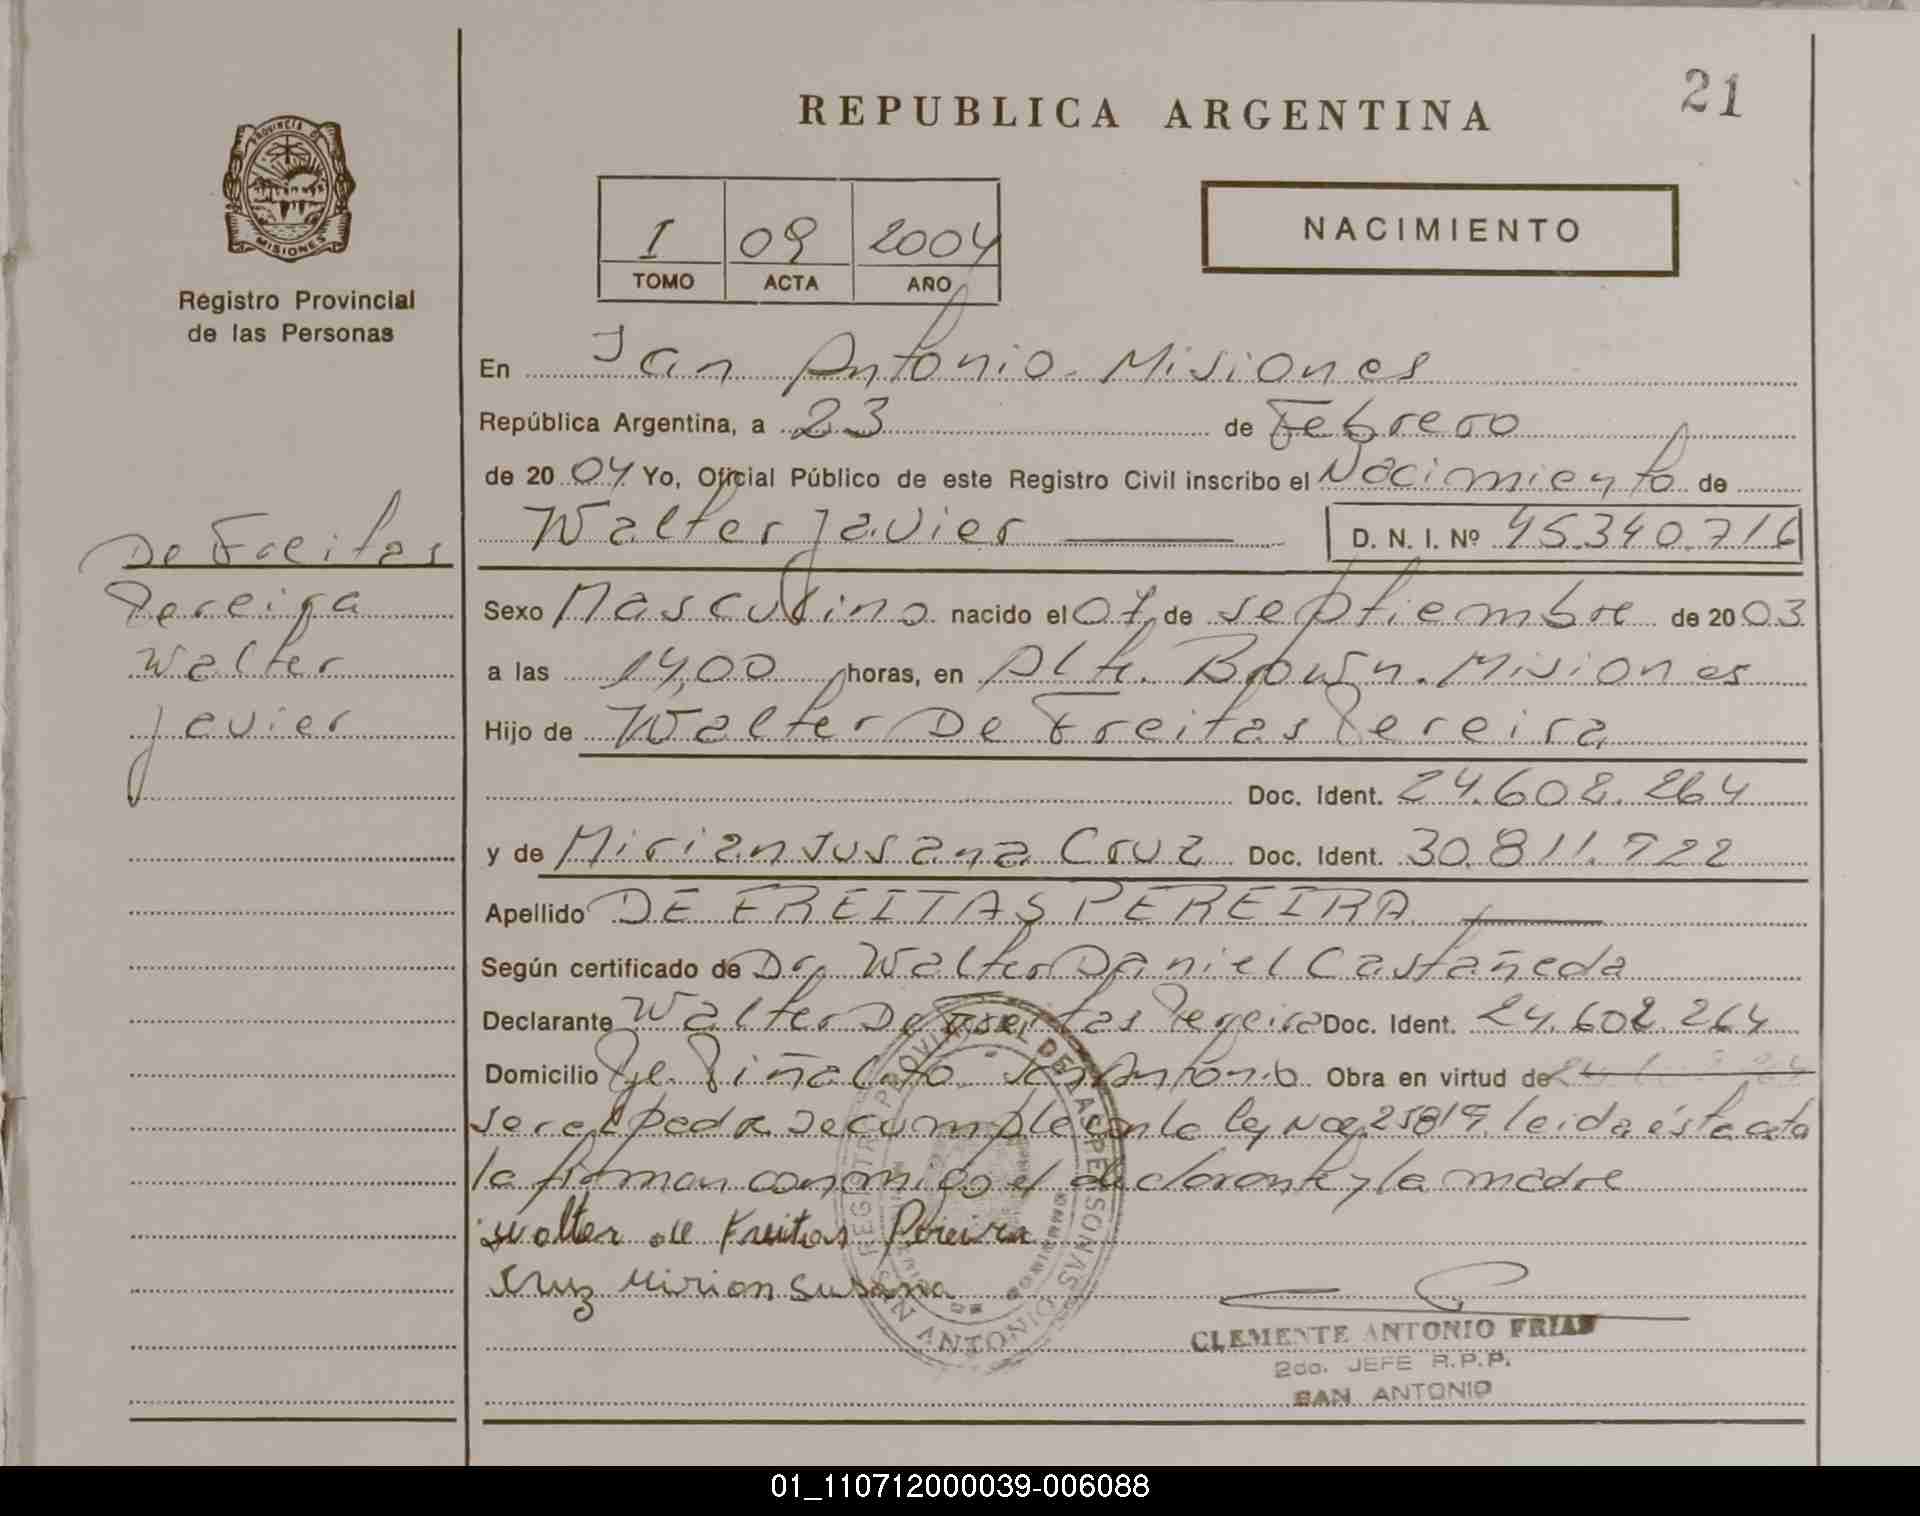 21
REPUBLICA ARGENTINA
PROVINCIA DE
MISIONES
Registro Provincial
de las Personas
I 09 2004
TOMO ACTA AÑO
NACIMIENTO
En San Antonio - Misiones
República Argentina, a 23 de Febrero
de 2004 Yo, Oficial Público de este Registro Civil inscribo el Nacimiento de
Walter Javier D. N. I. Nº 45.340.716
De Freitas
Pereira
Walter
Javier
Sexo Masculino nacido el 07 de septiembre de 2003
a las 14,00 horas, en Alte. Brown. Misiones
Hijo de Walter De Freitas Pereira
Doc. Ident. 24.602.264
y de Mirian Susana Cruz Doc. Ident. 30.811.922
Apellido DE FREITAS PEREIRA
Según certificado de Dr. Walter Daniel Castañeda
Declarante Walter De Freitas Pereira Doc. Ident. 24.602.264
Domicilio Pje. Piñalito San Antonio Obra en virtud de
se cumple con la ley Nº 25819 leida ésta acta
la firman conmigo el declarante y la madre
Walter de Freitas Pereira
Cruz Mirian Susana
REGISTRO PROVINCIAL DE LAS PERSONAS
SAN ANTONIO
CLEMENTE ANTONIO FRIAS
2do. JEFE R.P.P.
SAN ANTONIO
01_110712000039-006088